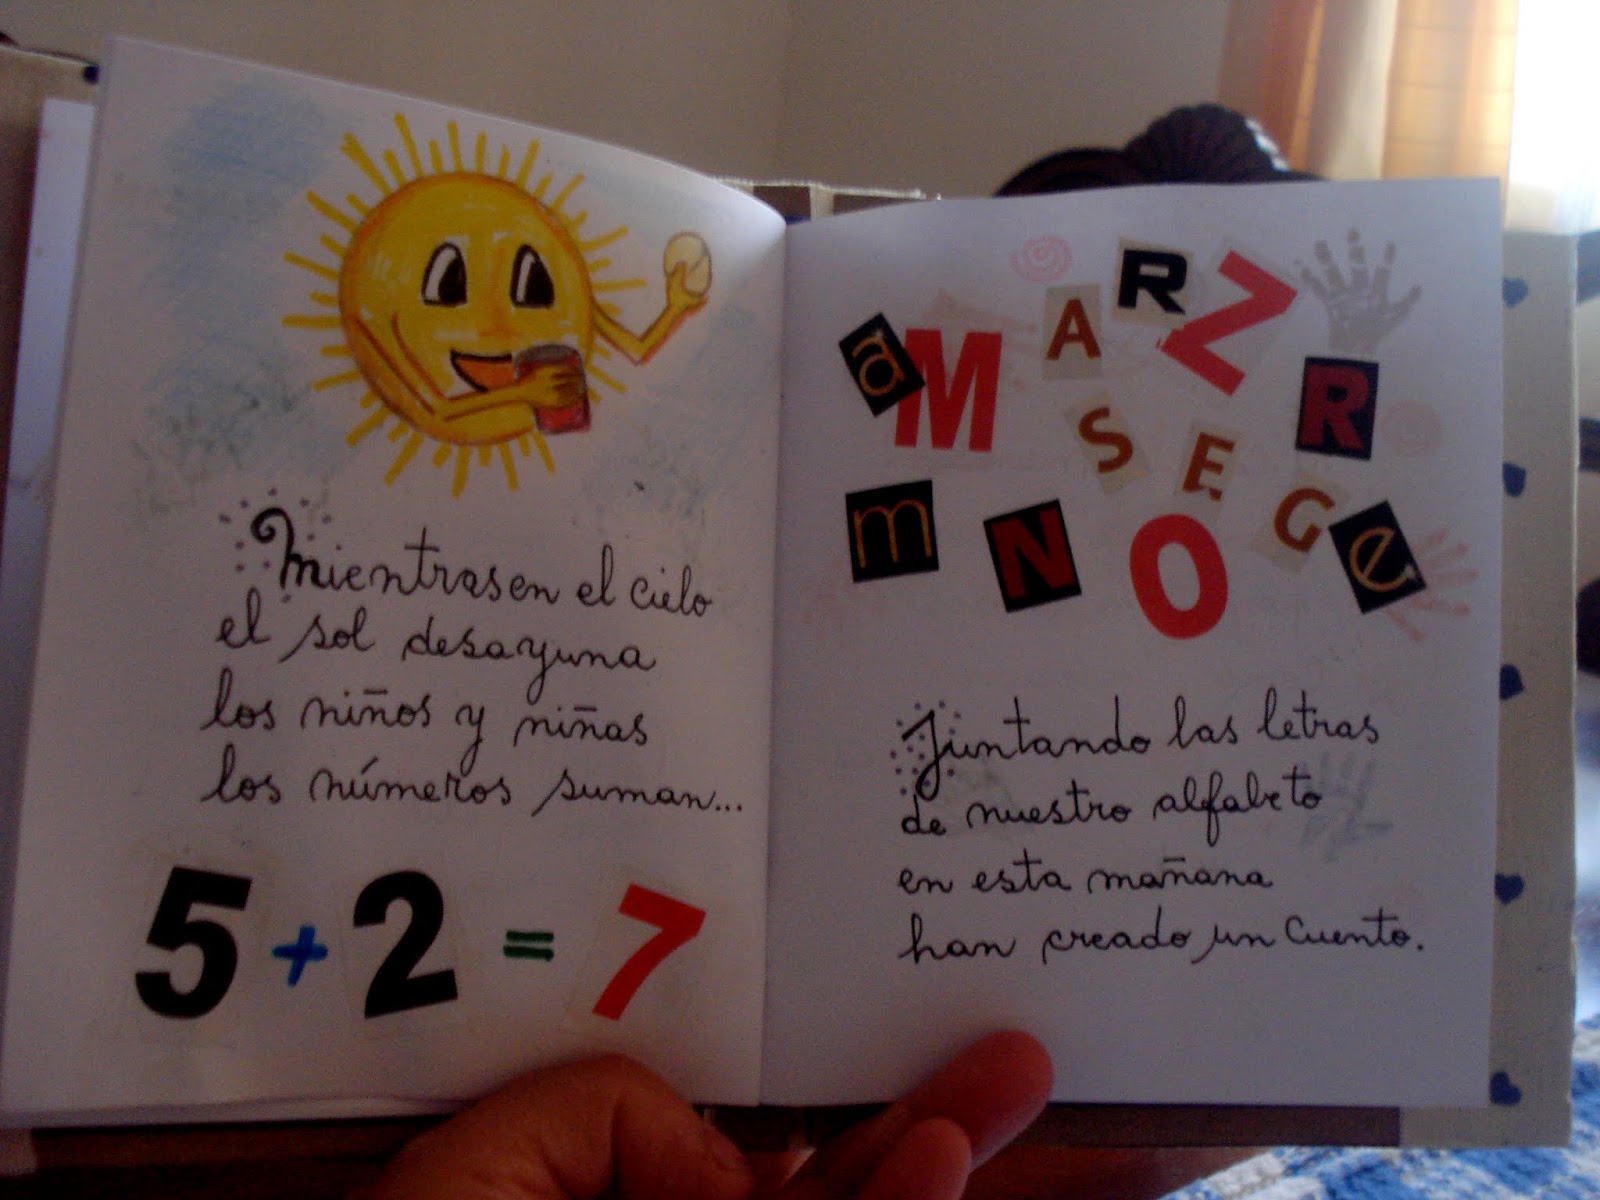 Mientras en el cielo
el sol desayuna
los niños y niñas
los números suman...
5 + 2 = 7
R Z
a M A R
S E
m N O G e
Juntando las letras
de nuestro alfabeto
en esta mañana
han creado un cuento.